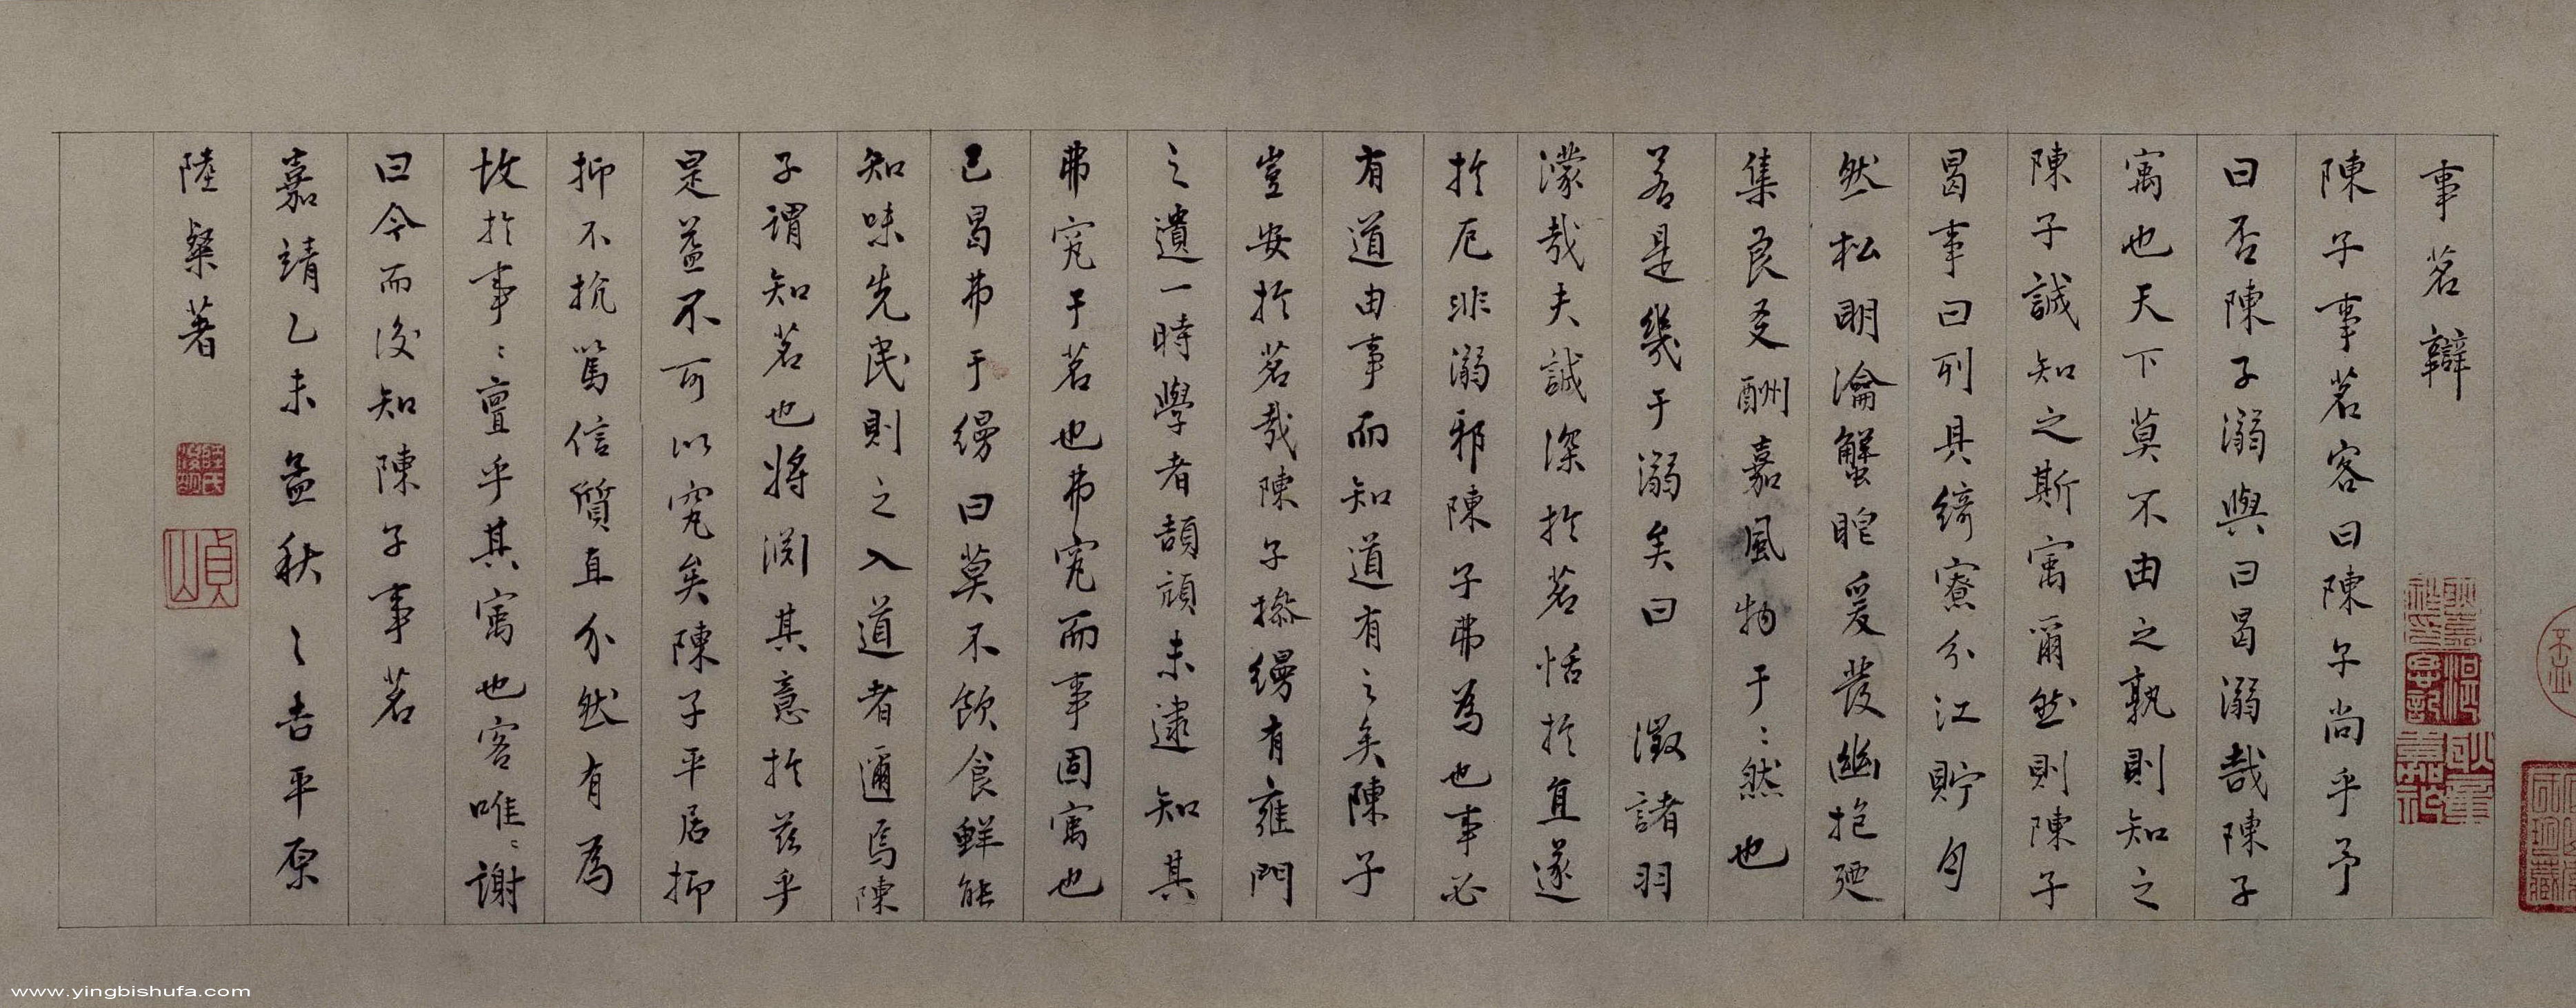 事茗辯
陳子事茗客曰陳子尚乎予
曰否陳子溺與曰曷溺哉陳子
寓也天下莫不由之孰則知之
陳子誠知之斯寓爾然則陳子
曷事曰列具綺寮分江貯月
然松明瀹蟹眼爰發幽抱迺
集良友酬嘉風物于〻然也
若是幾于溺矣曰 澂諸羽
濛哉夫誠深於茗恬於宜遂
於厄非溺邪陳子弗為也事必
有道由事而知道有之矣陳子
豈安於茗哉陳子摻縵有雍門
之遺一時學者頡頏未逮知其
弗究于茗也弗究而事固寓也
已曷弗于縵曰莫不飲食鮮能
知味先民則之入道者邇焉陳
子謂知茗也將淵其意於茲乎
是蓋不可以究矣陳子平居抑
抑不抗篤信質直介然有為
故於事〻亶乎其寓也客唯〻謝
曰今而後知陳子事茗
嘉靖乙未孟秋之吉平原
陸粲著
貞山
www.yingbishufa.com